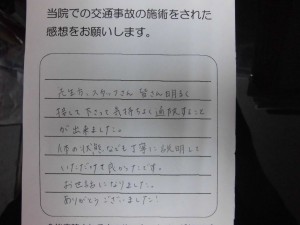 当院での交通事故の施術をされた
感想をお願いします。
先生方、スタッフさん 皆さん明るく
接して下さって気持ちよく通院すること
が出来ました。
体の状態なども丁寧に説明して
いただけて良かったです。
お世話になりました。
ありがとうございました!